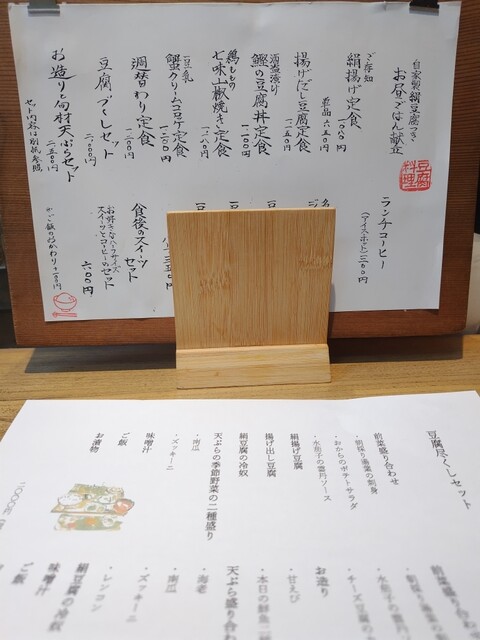 自家製絹豆腐つき
お昼ごはん献立
豆腐料理
ご存知
絹揚げ定食
一、一〇〇円
単品六五〇円
揚げだし豆腐定食
一、二五〇円
鰹の豆腐丼定食
一、一〇〇円
鶏もも
七味山椒焼き定食
一、二八〇円
豆乳
蟹クリームコロッケ定食
一、二〇〇円
週替わり定食
一、二〇〇円
豆腐づくしセット
二、〇〇〇円
お造りと旬材天ぷらセット
二、五〇〇円
セット内容は別紙参照
ランチコーヒー
(アイス・ホット)二〇〇円
食後のスイーツセット
お好きなハーフサイズ
スイーツとコーヒーのセット
六〇〇円
豆腐尽くしセット
前菜盛り合わせ
・朝採り湯葉の刺身
・おからのポテトサラダ
・水茄子の雲丹ソース
絹揚げ豆腐
揚げ出し豆腐
絹豆腐の冷奴
天ぷらの季節野菜の二種盛り
・南瓜
・ズッキーニ
味噌汁
ご飯
お漬物
前菜盛り合わ
・朝採り湯葉の
・水茄子の雲丹
・チーズ豆腐の
お造り
・甘えび
・本日の鮮魚二
天ぷら盛り合わ
・海老
・南瓜
・ズッキーニ
・レンコン
絹豆腐の冷奴
味噌汁
ご飯